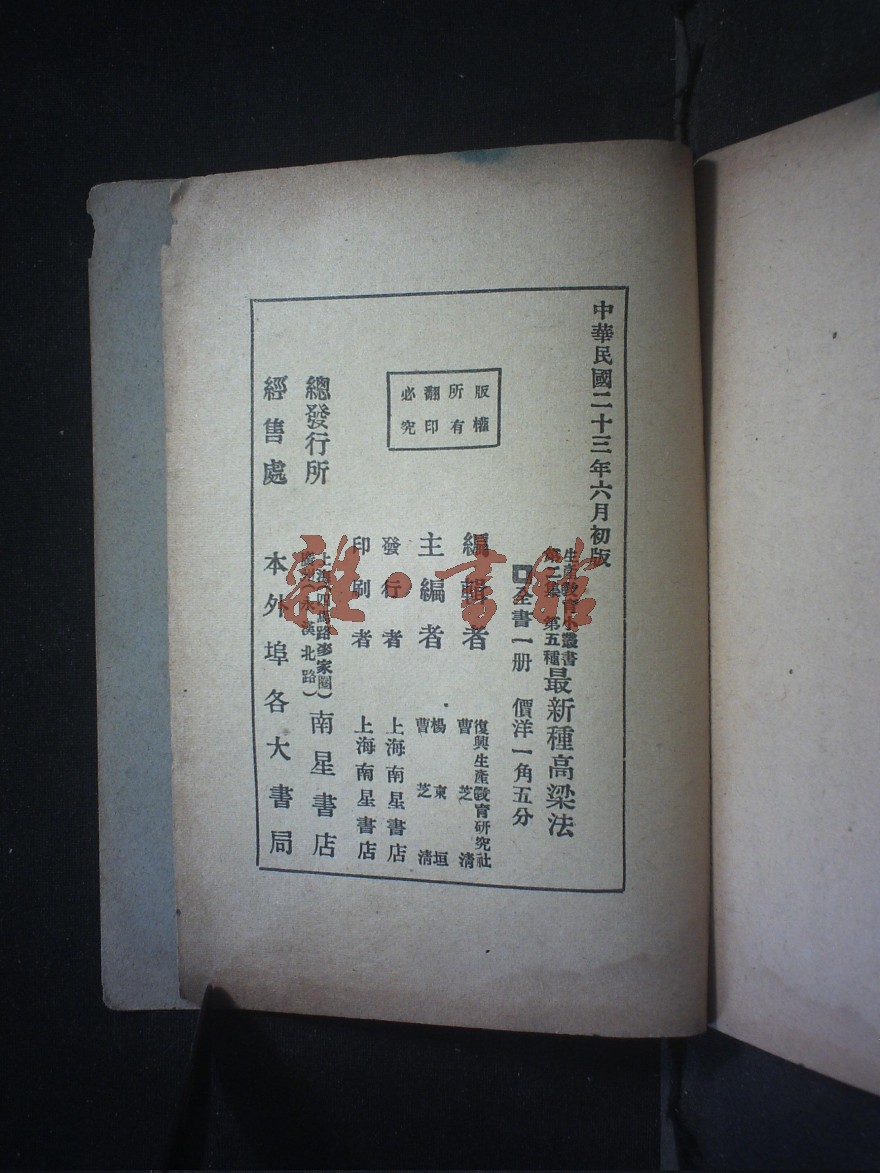 中華民國二十三年六月初版
生產敎育小叢書
第二集 第五種
最新種高粱法
全書一册 價洋一角五分
版權
所有
翻印
必究
編輯者
復興生產敎育研究社
曹芝清
主編者
楊東垣
曹芝清
發行者 上海南星書店
印刷者 上海南星書店
總發行所
上海四馬路麥家圈
漢北路
南星書店
經售處 本外埠各大書局
雜·書館